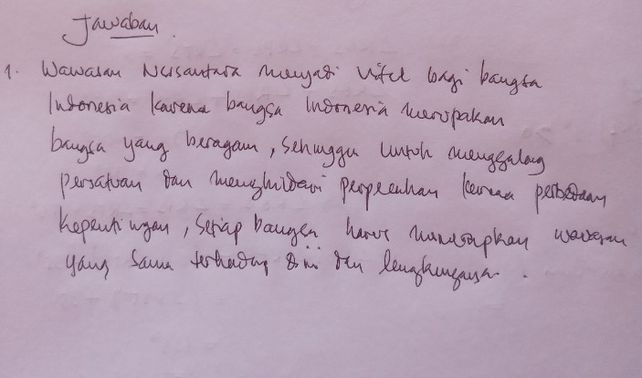 Jawaban.
1. Wawasan Nusantara menjadi vital bagi bangsa
Indonesia karena bangsa Indonesia merupakan
bangsa yang beragam, sehingga untuk menggalang
persatuan dan menghindari perpecahan karena perbedaan
kepentingan, setiap bangsa harus menerapkan wawasan
yang sama terhadap diri dan lengkungannya.